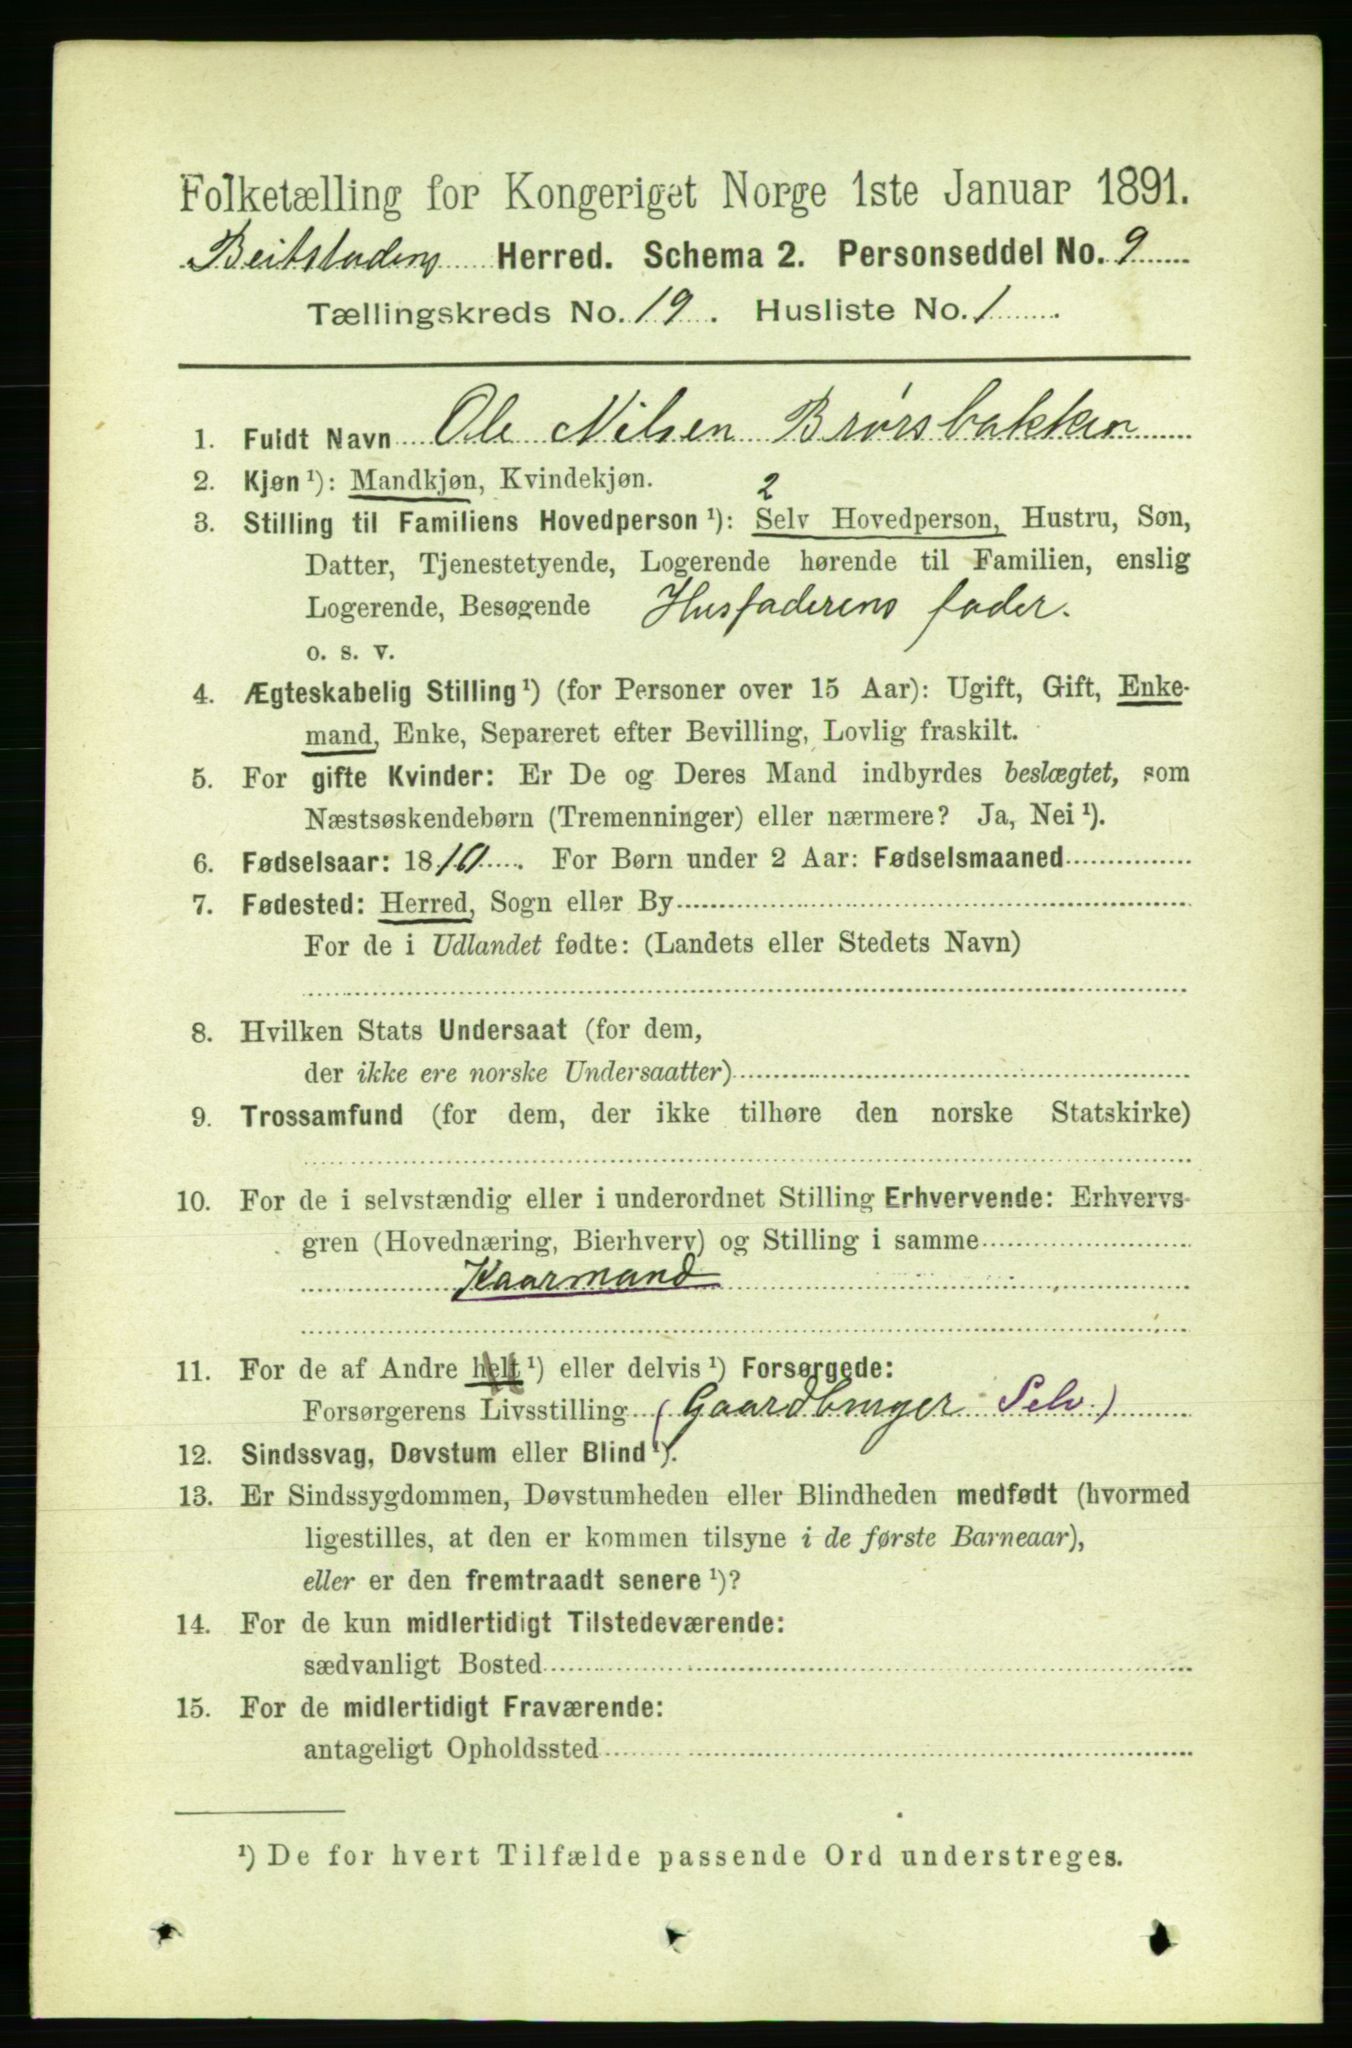 Folketælling for Kongeriget Norge 1ste Januar 1891.
Beitstadens Herred. Schema 2. Personseddel No. 9
Tællingskreds No. 19. Husliste No. 1
1. Fuldt Navn Ole Nilsen Brørsbakken
2. Kjøn ¹): Mandkjøn, Kvindekjøn.
2
3. Stilling til Familiens Hovedperson ¹): Selv Hovedperson, Hustru, Søn,
Datter, Tjenestetyende, Logerende hørende til Familien, enslig
Logerende, Besøgende Husfaderens fader.
o. s. v.
4. Ægteskabelig Stilling ¹) (for Personer over 15 Aar): Ugift, Gift, Enke-
mand, Enke, Separeret efter Bevilling, Lovlig fraskilt.
5. For gifte Kvinder: Er De og Deres Mand indbyrdes beslægtet, som
Næstsøskendebørn (Tremenninger) eller nærmere? Ja, Nei ¹).
6. Fødselsaar: 1810. For Børn under 2 Aar: Fødselsmaaned
7. Fødested: Herred, Sogn eller By
For de i Udlandet fødte: (Landets eller Stedets Navn)
8. Hvilken Stats Undersaat (for dem,
der ikke ere norske Undersaatter)
9. Trossamfund (for dem, der ikke tilhøre den norske Statskirke)
10. For de i selvstændig eller i underordnet Stilling Erhvervende: Erhvervs-
gren (Hovednæring, Bierhverv) og Stilling i samme
Kaarmand
11. For de af Andre helt ¹) eller delvis ¹) Forsørgede:
Forsørgerens Livsstilling (Gaardbruger Selv.)
12. Sindssvag, Døvstum eller Blind ¹).
13. Er Sindssygdommen, Døvstumheden eller Blindheden medfødt (hvormed
ligestilles, at den er kommen tilsyne i de første Barneaar),
eller er den fremtraadt senere ¹)?
14. For de kun midlertidigt Tilstedeværende:
sædvanligt Bosted
15. For de midlertidigt Fraværende:
antageligt Opholdssted
¹) De for hvert Tilfælde passende Ord understreges.